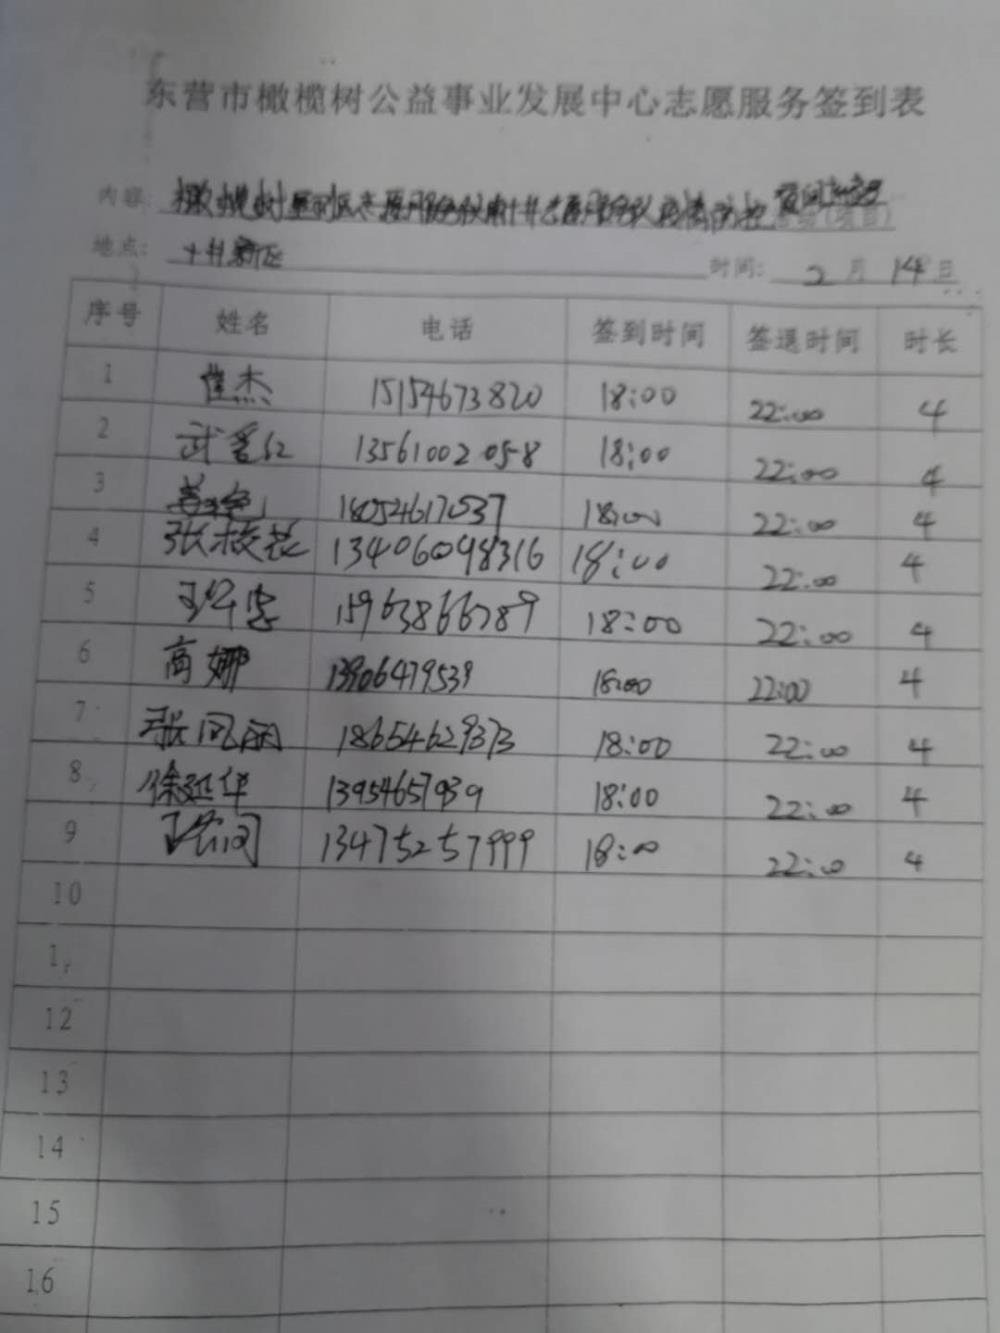 东营市橄榄树公益事业发展中心志愿服务签到表
内容: 橄榄树 志愿服务队 志愿服务队疫情防控 夜间 活动(项目)
地点: 十村新区
时间: 2月14日
序号 姓名 电话 签到时间 签退时间 时长
1 崔杰 15154673820 18:00 22:00 4
2 武 13561002058 18:00 22:00 4
3 18054617037 18:00 22:00 4
4 张枝花 13406098316 18:00 22:00 4
5 15963866789 18:00 22:00 4
6 高娜 13906479539 18:00 22:00 4
7 张凤丽 18654629373 18:00 22:00 4
8 徐延华 13954657939 18:00 22:00 4
9 13475257999 18:00 22:00 4
10
12
13
14
15
16